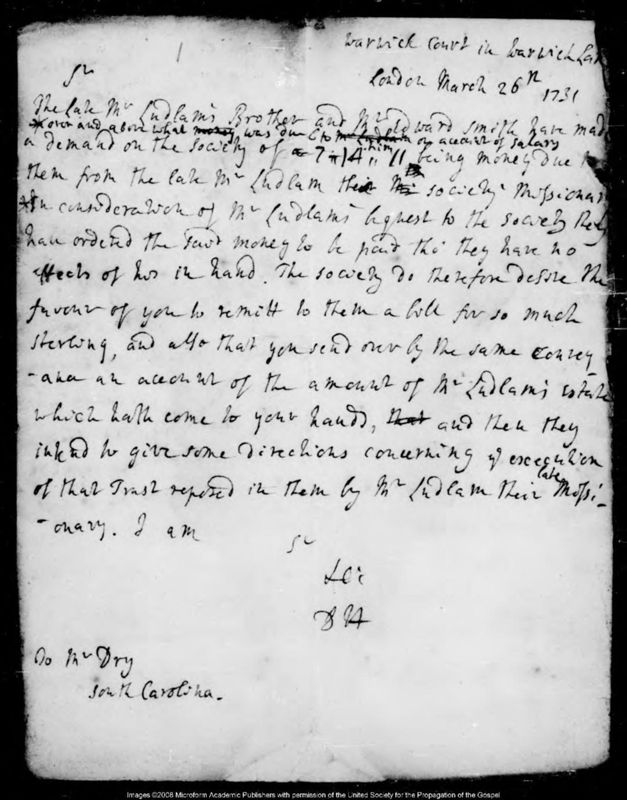 1
Warwick Court in Warwick Lan
London March 26th 1731
Sr
The late Mr Ludlam's Brother and Mr Edward Smith have made
*over and above what money was due to him on account of salary
a demand on the Society of 7 " 14 " 11 being money due to
them from the late Mr Ludlam the Society's Missionary
*In consideration of Mr Ludlam's bequest to the Society they
have ordered the said money to be paid tho' they have no
effects of his in hand. The Society do therefore desire the
favour of you to remitt to them a bill for so much
sterling, and also that you send over by the same convey-
-ance an account of the amount of Mr Ludlam's estate
which hath come to your hands, that and then they
intend to give some directions concerning ye execution
late
of that Trust reposed in them by Mr Ludlam their Missi-
-onary. I am
Sr
&c
D H
To Mr Dry
South Carolina.
Images ©2008 Microform Academic Publishers with permission of the United Society for the Propagation of the Gospel